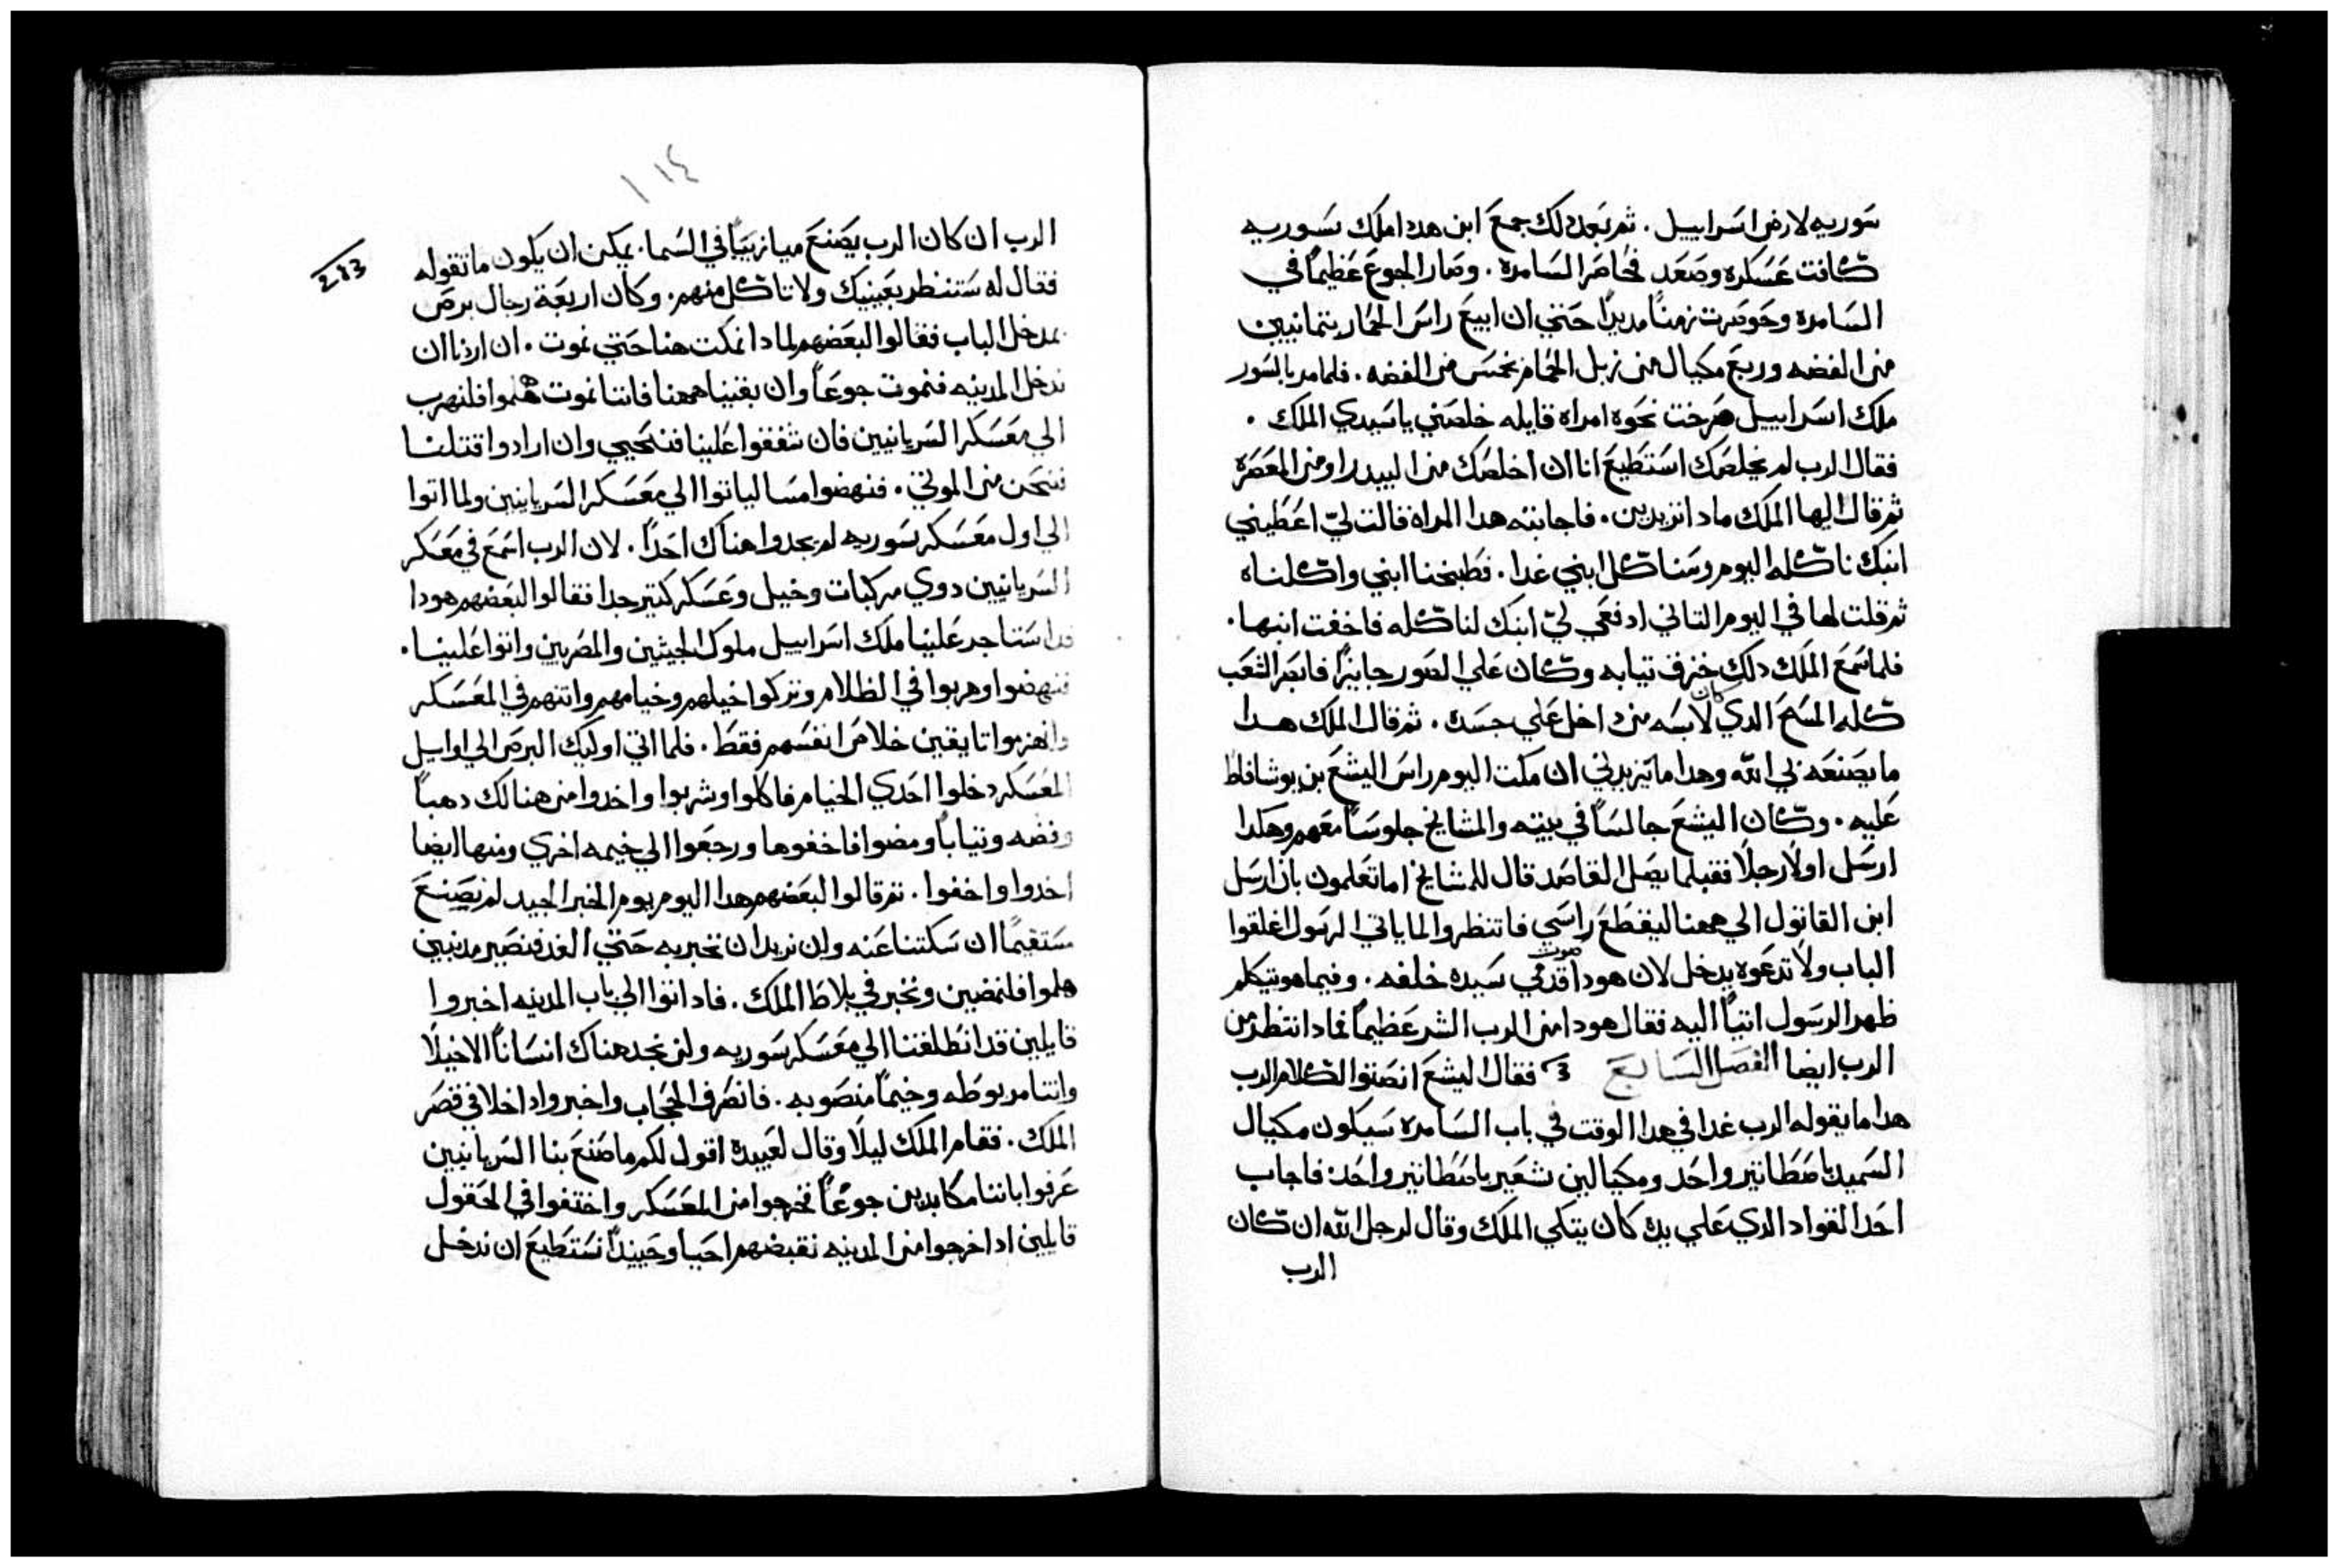 سوريه لارض اسراييل . ثم بعد دلك جمع ابن هددا ملك سوريه
كافت عسكره وصعد فحاصر السامره . وصار الجوع عظيمًا في
السامره وحوصرت زمنًا مديدًا حتي ان ابيع راس الحمار بتمانيين
من الفضه وربع مكيال من زبل الحمام بخمس من الفضه . فلما مر بالسور
ملك اسراييل صرخت نحوه امراه قايله خلصني يا سيدي الملك .
فقال الرب لم يخلصك استطيع انا ان اخلصك من البيدر او من المعصره
ثم قال اليها الملك مادا تريدين . فاجابته هدا المراه قالت ليّ اعطيني
ابنك ناكله اليوم وسناكل ابني غدا . فطبخنا ابني واكلناه
ثم قلت لها في اليوم التاني ادفعي ليّ ابنك لناكله فاخفت ابنها .
فلما سمع الملك دلك خزف تيابه وكان علي الصور جايزًا فابصر الشعب
كله المسح الدي كان لابسه من داخل علي جسده . ثم قال الملك هدا
ما يصنعه بي الله وهدا ما يزيدني ان مكت اليوم راس اليشع بن يوشافاط
عليه . وكان اليشع جالسًا في بيته والمشايخ جلوسًا معهم وهكدا
ارسل اولًا رجلًا فقبلما يصل القاصد قال للمشايخ اما تعلمون بان ارسل
ابن القاتول الي ههنا ليقطع راسي فانتظروا لما ياتي الرسول اغلقوا
الباب ولا تدعوه يدخل لان هودا صوت قدمي سيده خلفه . وفيما هو يتكلم
ظهر الرسول اتيًا اليه فقال هودا من الرب الشر عظيمًا فمادا انتظر من
الرب ايضا الفصل السابع فقال اليشع انصتوا لكلام الرب
هدا ما يقوله الرب غدا في هدا الوقت في باب السامره سيكون مكيال
السميد باصطاتير واحد ومكيالين شعير باصطاتير واحد: فاجاب
احد القواد الدي علي يده كان يتكي الملك وقال لرجل الله ان كان
الرب
١١٤
213
الرب ان كان الرب يصنع ميازيبًا في السما . يمكن ان يكون ما تقوله
فقال له ستنظر بعينيك ولا تاكل منهم . وكان اربعة رجال برص
بمدخل الباب فقالوا لبعضهم لمادا نمكت هنا حتي نموت . ان اردنا ان
ندخل المدينه فنموت جوعًا وان بقينا ههنا فاننا نموت هلموا فلنهرب
الي معسكر السريانيين فان شفقوا علينا فنحيي وان ارادوا قتلنا
فنحن من الموتي . فنهضوا مسا لياتوا الي معسكر السريانيين ولما اتوا
الي اول معسكر سوريه لم يجدوا هناك احدًا . لان الرب اسمع في معسكر
السريانيين دوي مركبات وخيل وعسكر كتير جدا فقالوا لبعضهم هودا
قد استاجر علينا ملك اسراييل ملوك الحيثين والمصريين واتوا علينا .
فنهضوا وهربوا في الظلام وتركوا خيلهم وخيامهم واتنهم في المعسكر
وانهزموا تايقين خلاص انفسهم فقط . فلما اتي اوليك البرص الي اوايل
المعسكر دخلوا احدي الخيام فاكلوا وشربوا واخدوا من هنالك دهبًا
وفضه وتيابًا ومضوا فاخفوها ورجعوا الي خيمه اخري ومنها ايضا
اخدوا واخفوا . تم قالوا لبعضهم هدا اليوم يوم الخبر الجيد لم نصنع
مستقيمًا ان سكتنا عنه ولن نريد ان نخبر به حتي الغد فنصير مدنبين
هلموا فلنمضين ونخبر في بلاط الملك . فادا اتوا الي باب المدينه اخبروا
قايلين قد انطلقنا الي معسكر سوريه ولن نجد هناك انسانًا الا خيلًا
واتنا مربوطه وخيمًا منصوبه . فانصرف الحجاب واخبروا داخلا في قصر
الملك . فقام الملك ليلًا وقال لعبيده اقول لكم ما صنع بنا السريانيين
عرفوا باننا مكابدين جوعًا فخرجوا من المعسكر واختفوا في الحقول
قايلين ادا خرجوا من المدينه نقبضهم احيا وحينيدًا نستطيع ان ندخل